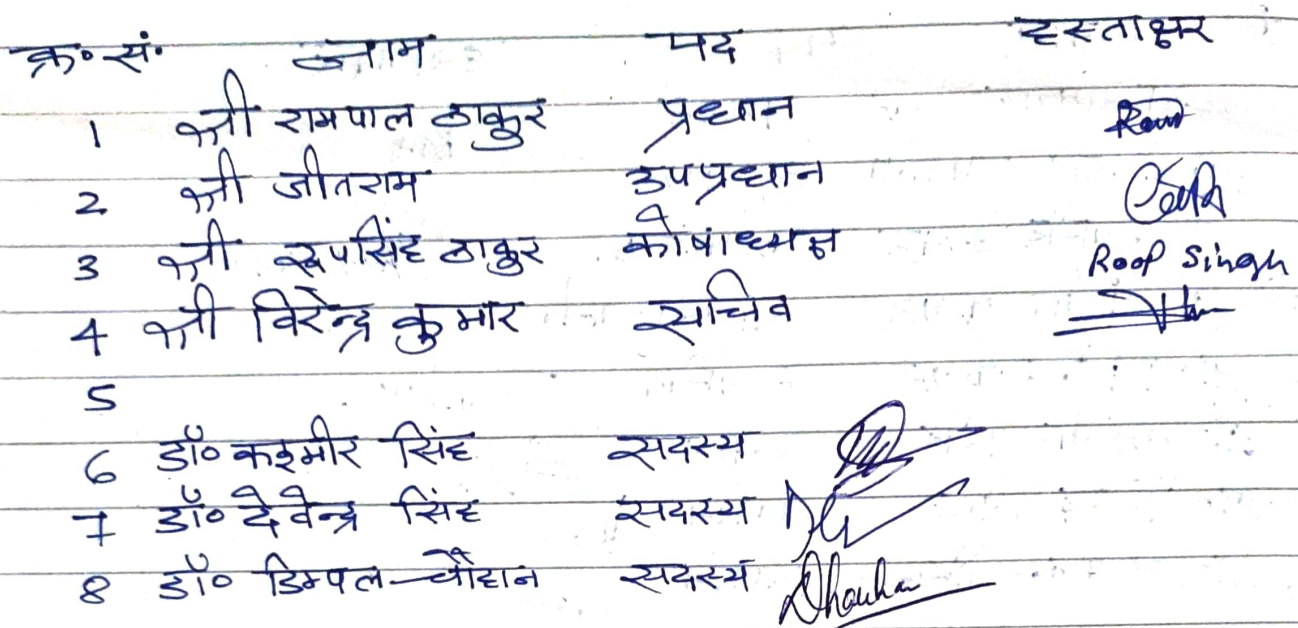 क्र॰ सं॰ नाम पद हस्ताक्षर
1 श्री रामपाल ठाकुर प्रधान
2 श्री जीतराम उपप्रधान
3 श्री रूपसिंह ठाकुर कोषाध्यक्ष Roop Singh
4 श्री विरेन्द्र कुमार सचिव
5
6 डॉ॰ कश्मीर सिंह सदस्य
7 डॉ॰ देवेन्द्र सिंह सदस्य
8 डॉ॰ डिम्पल चौहान सदस्य Dhauhan